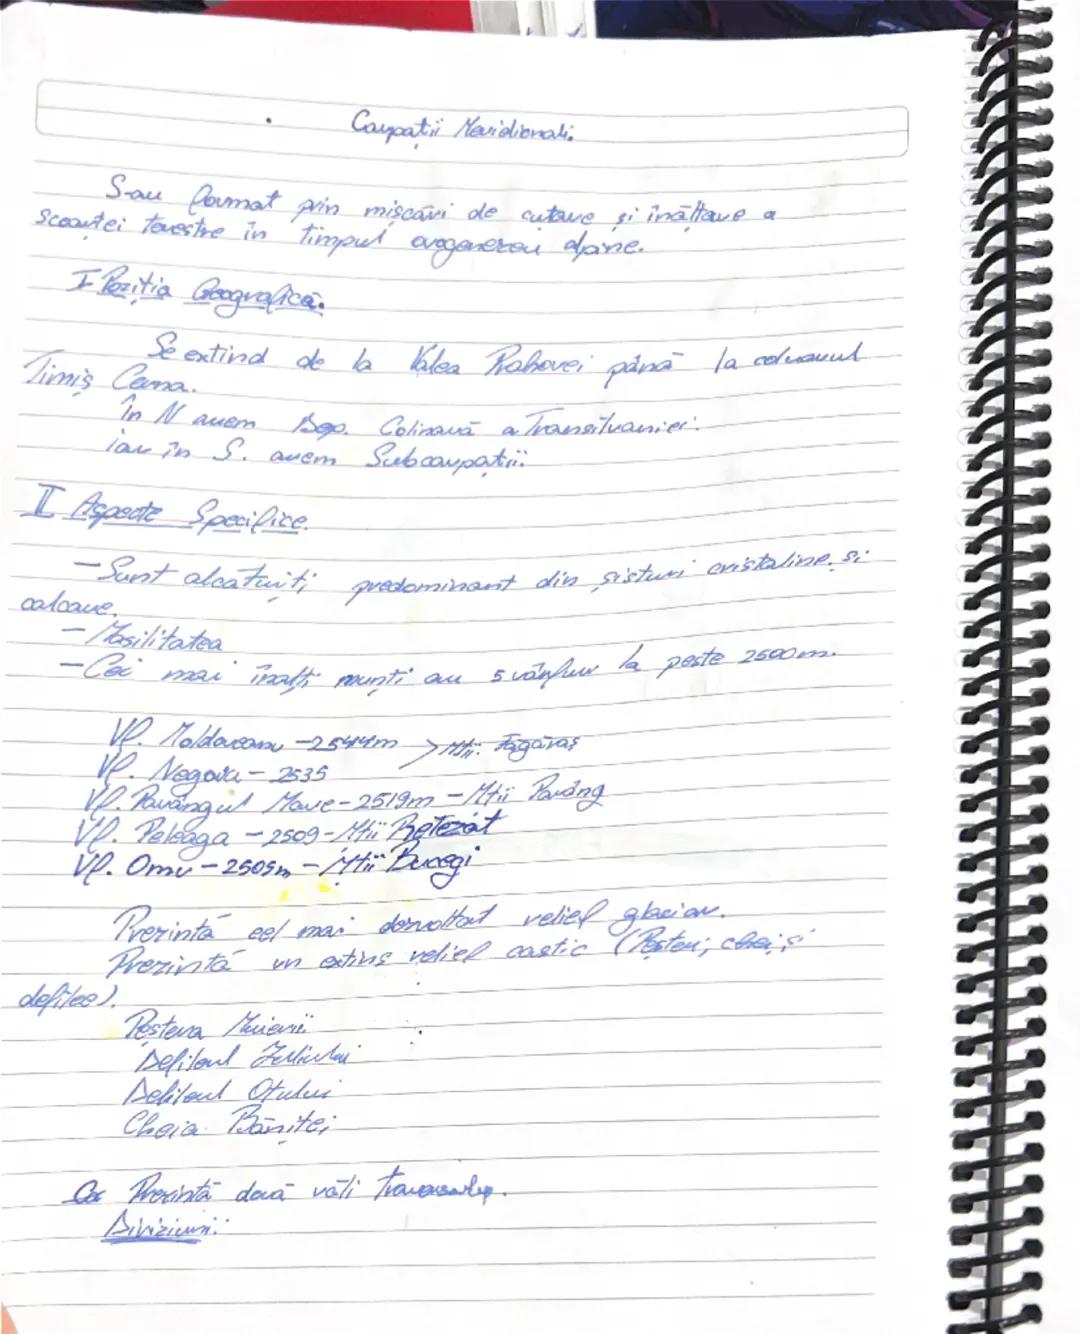 Carpații Meridionali.
S-au format prin mișcări de cutare și înălțare a
scoarței terestre în timpul orogenezei alpine.
I Poziția Geografică.
Se extind de la Valea Prahovei până la coluarul
Timiș Cerna.
În N avem Dep. Colinară a Transilvaniei.
iar în S. avem Subcarpații.
II Aspecte Specifice.
- Sunt alcătuiți predominant din șisturi cristaline și
calcare.
- Masilitatea
- Cei mai înalți munți au 5 vârfuri la peste 2500 m.
Vf. Moldoveanu - 2544m > Mții. Făgăraș
Vf. Negoiu - 2535
Vf. Parângul Mare - 2519m - Mții Parâng
Vf. Peleaga - 2509 - Mții Retezat
Vf. Omu - 2505m - Mții Bucegi
Prezintă cel mai dezvoltat relief glaciar.
Prezintă un extins relief castic (Peșteri, chei, și
defilee).
Peștera Muierii
Defileul Jiului
Defileul Oltului
Cheia Băniței
Prezintă două văi transversale.
Diviziuni: